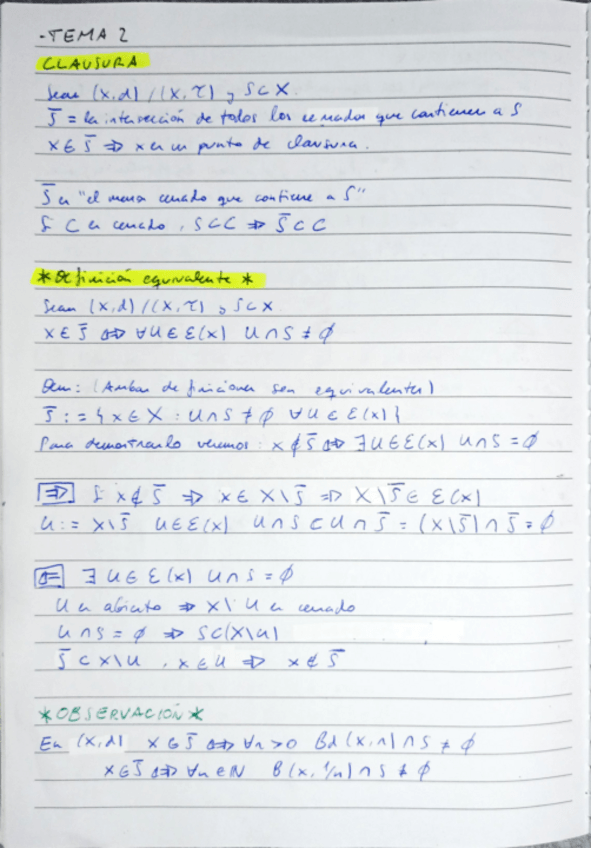 -TEMA 2
CLAUSURA
Sean (X,d) / (X,τ) y S⊂X.
S̅ = la intersección de todos los cerrados que contienen a S
x∈S̅ ⇒ x es un punto de clausura.
S̅ es "el menor cerrado que contiene a S"
Si C es cerrado, S⊂C ⇒ S̅⊂C
*Definición equivalente*
Sean (X,d) / (X,τ) y S⊂X
x∈S̅ ⇔ ∀U∈Ɛ(x) U∩S≠∅
Dem: (Ambas definiciones son equivalentes)
S̅ := {x∈X : U∩S≠∅ ∀U∈Ɛ(x)}
Para demostrarlo veremos: x∉S̅ ⇔ ∃U∈Ɛ(x) U∩S=∅
⇒ Si x∉S̅ ⇒ x∈X\S̅ ⇒ X\S̅∈Ɛ(x)
U:= X\S̅ U∈Ɛ(x) U∩S⊂U∩S̅ = (X\S̅)∩S̅=∅
⇐ ∃U∈Ɛ(x) U∩S=∅
U es abierto ⇒ X\U es cerrado
U∩S=∅ ⇒ S⊂(X\U)
S̅⊂X\U, x∈U ⇒ x∉S̅
*OBSERVACIÓN*
En (X,d) x∈S̅ ⇔ ∀r>0 Bd(x,r)∩S≠∅
x∈S̅ ⇔ ∀n∈ℕ B(x,1/n)∩S≠∅